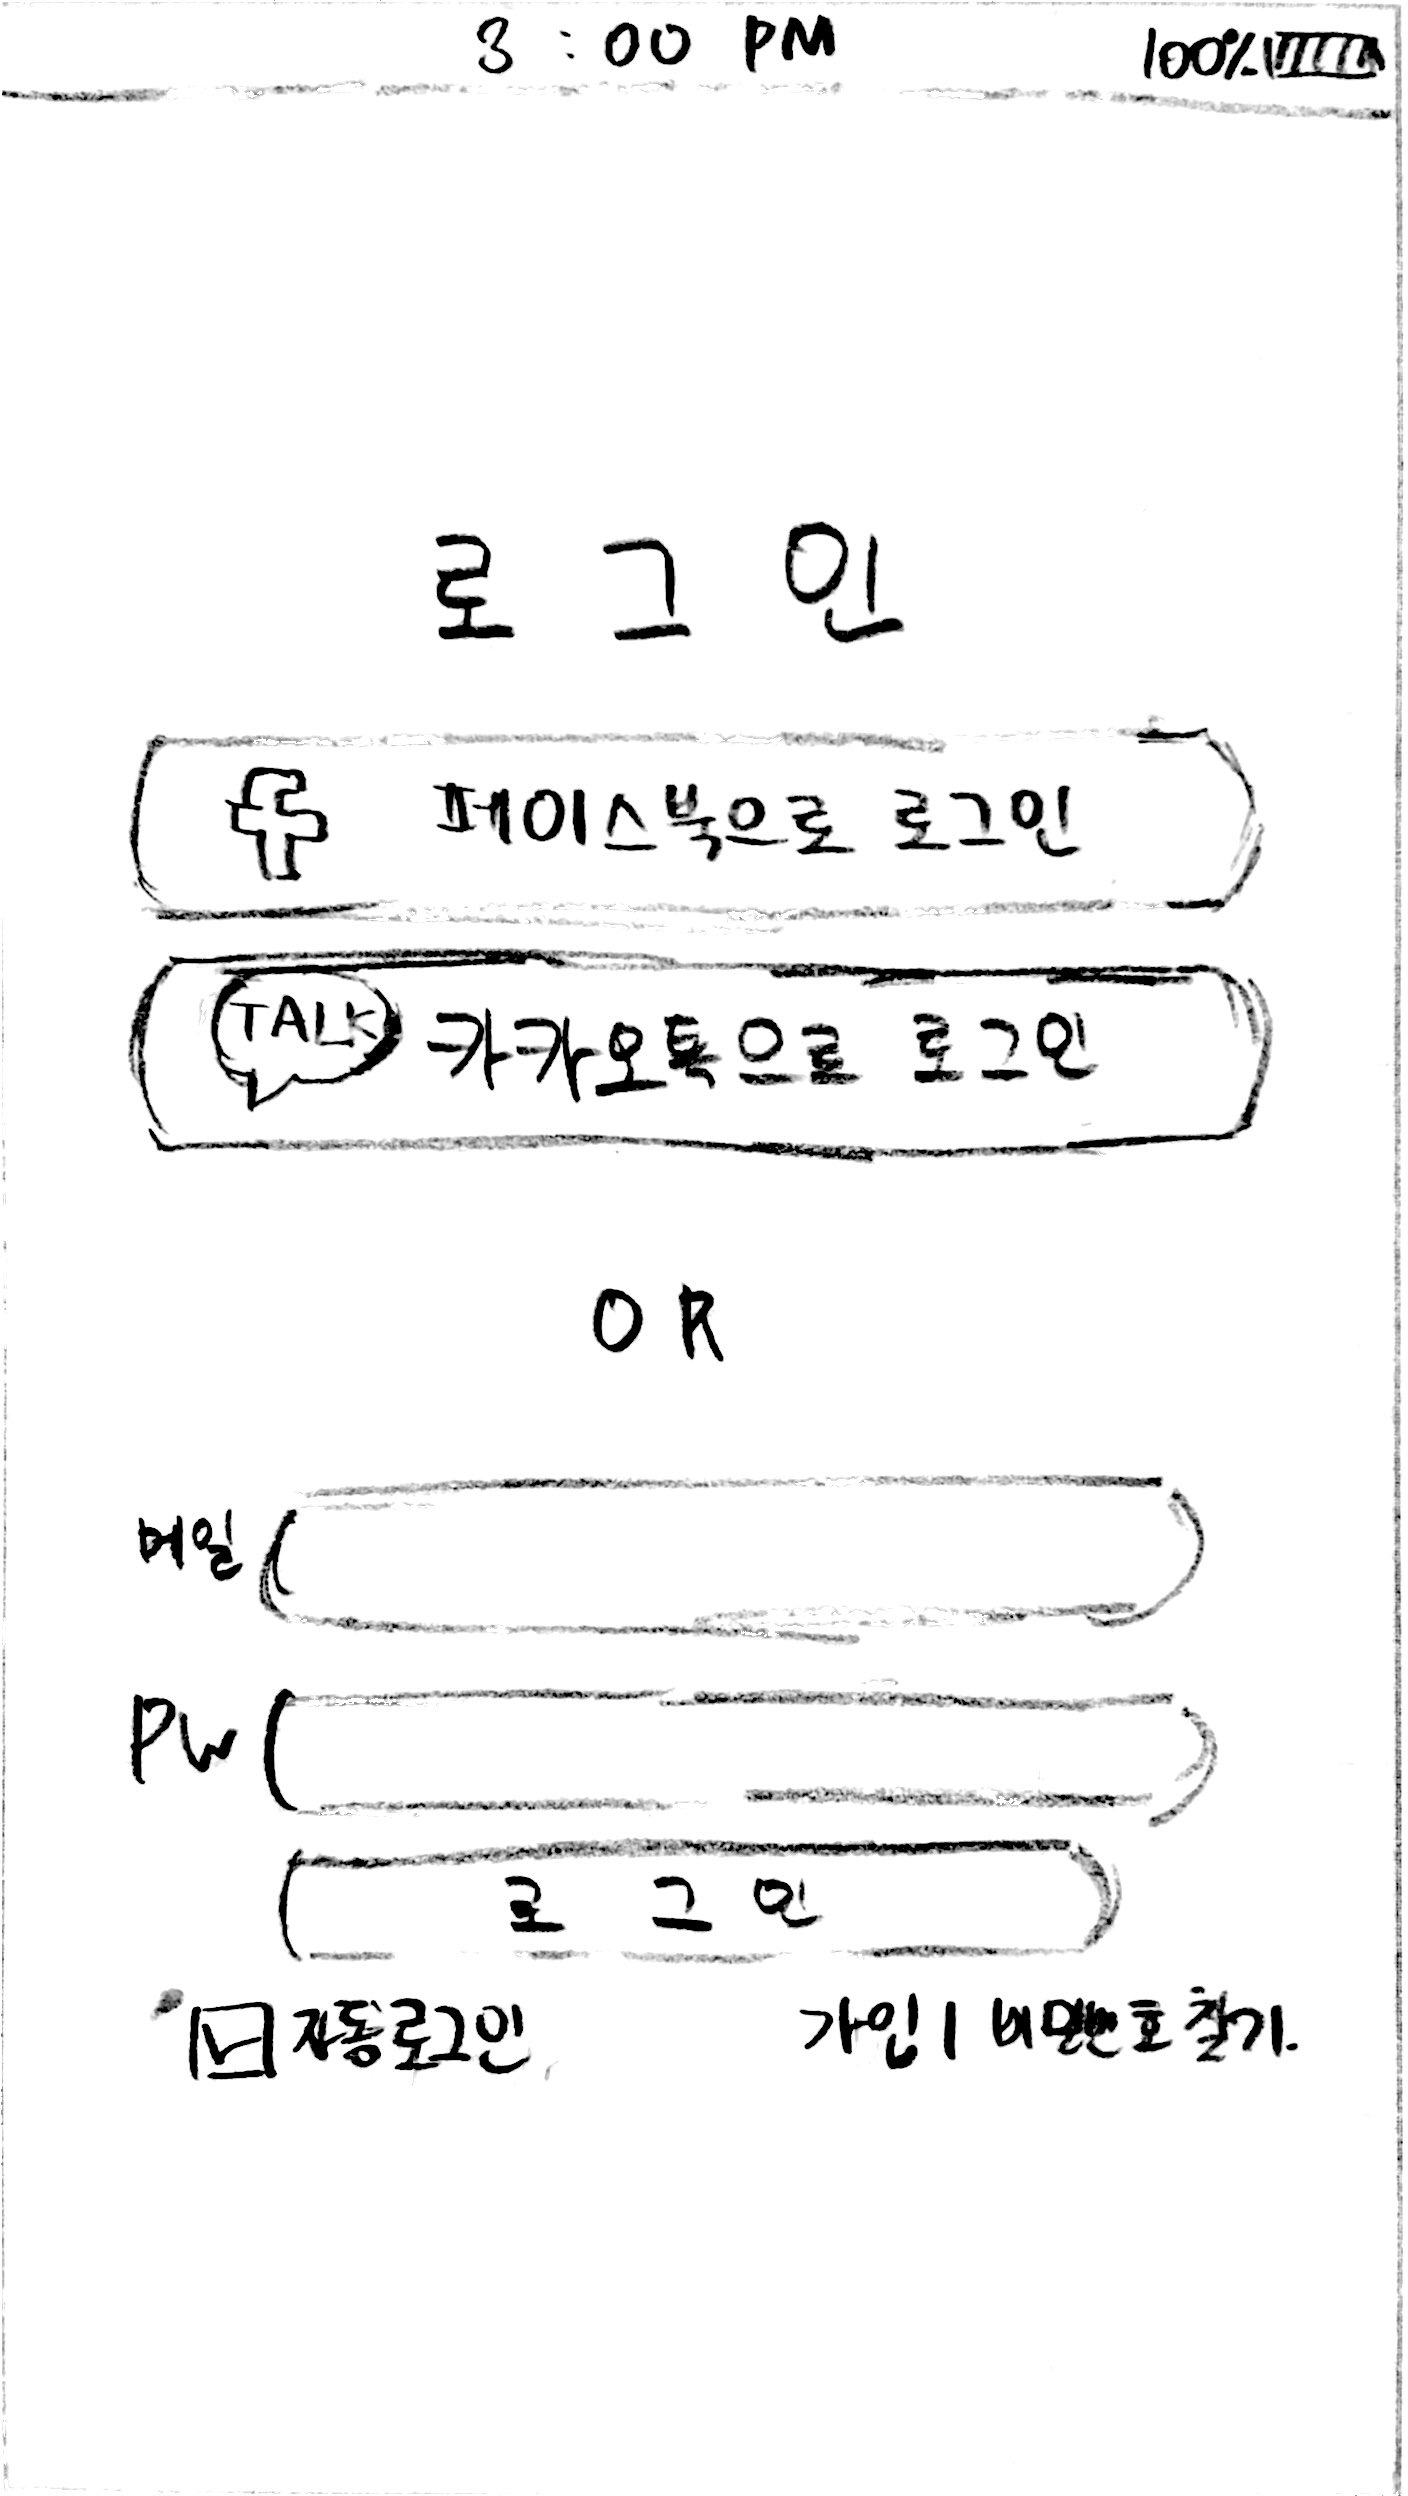 3:00 PM 100%
로그인
페이스북으로 로그인
TALK 카카오톡으로 로그인
OR
메일
PW
로그인
자동로그인 가입 | 비밀번호 찾기.